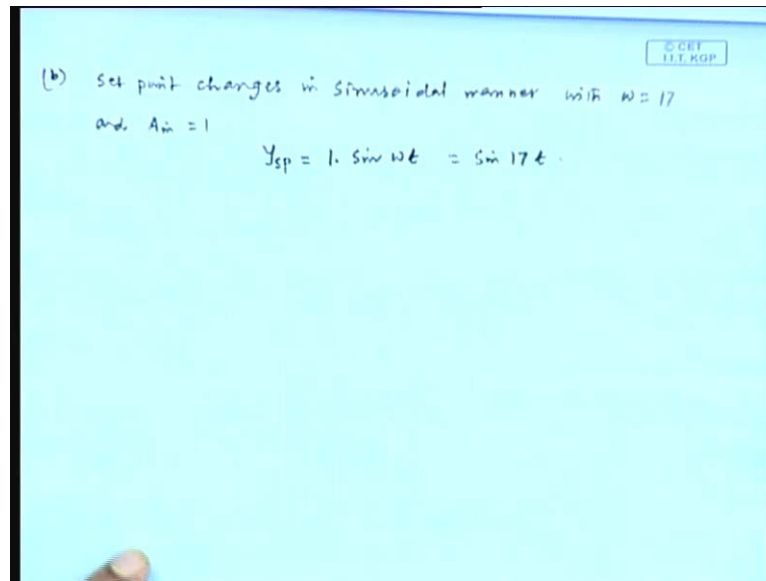 © CET
I.I.T. KGP
(b) Set point changes in sinusoidal manner with ω = 17
and Ain = 1
Ysp = 1. Sin ωt = Sin 17 t .